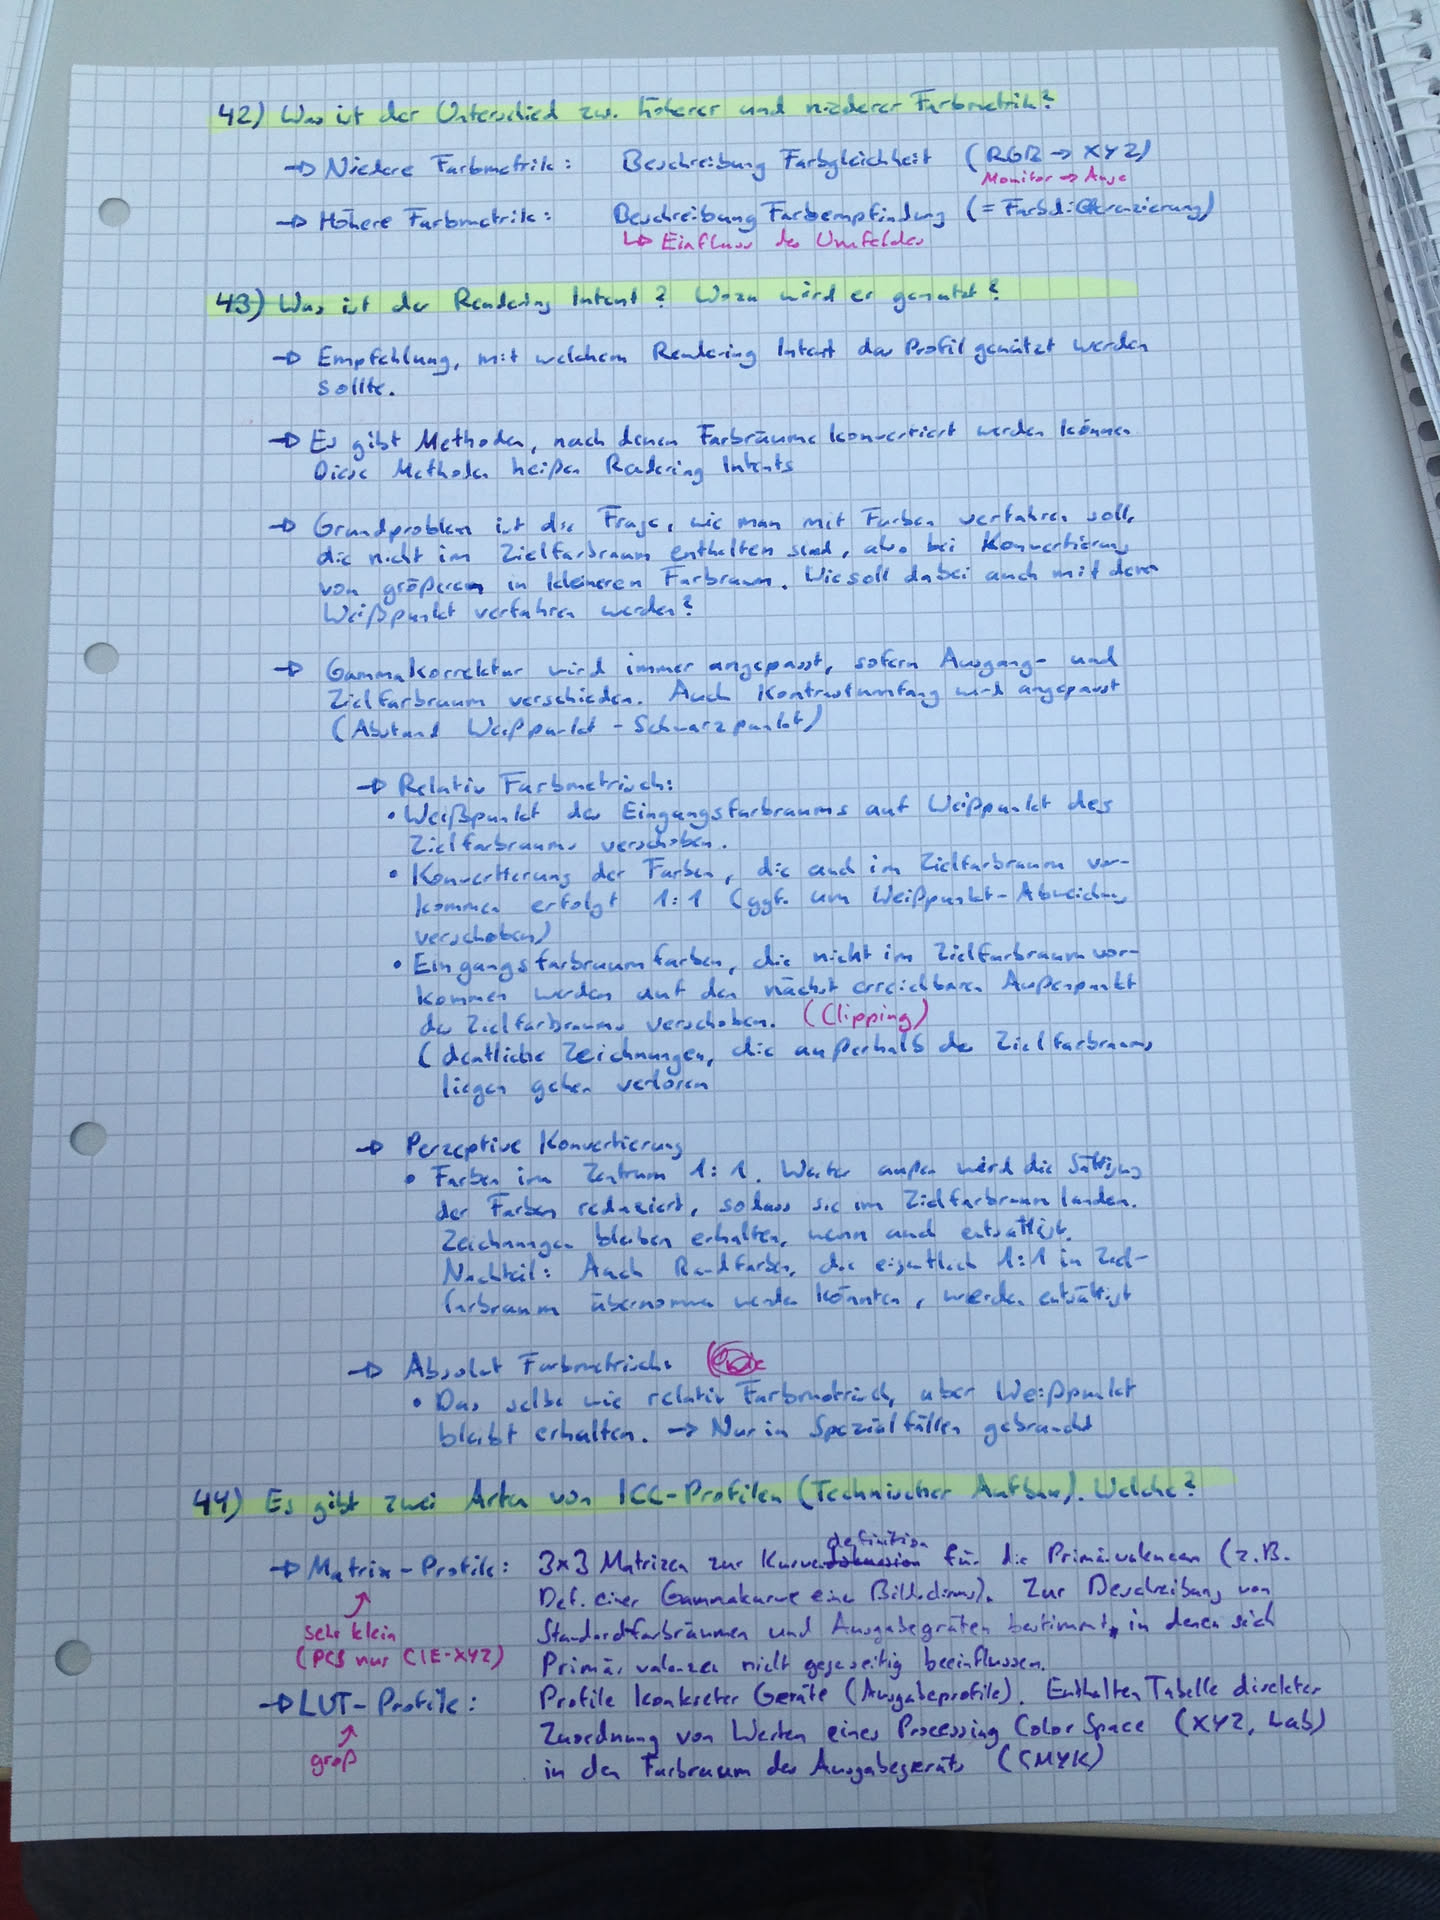 42) Was ist der Unterschied zw. höherer und niederer Farbmetrik?
→ Niedere Farbmetrik: Beschreibung Farbgleichheit (RGB → XYZ)
Monitor → Auge
→ Höhere Farbmetrik: Beschreibung Farbempfindung (= Farbdifferenzierung)
↳ Einfluss des Umfeldes
43) Was ist der Rendering Intent? Wozu wird er genutzt?
→ Empfehlung, mit welchem Rendering Intent das Profil genützt werden
sollte.
→ Es gibt Methoden, nach denen Farbräume konvertiert werden können
Diese Methoden heißen Rendering Intents
→ Grundproblem ist die Frage, wie man mit Farben verfahren soll,
die nicht im Zielfarbraum enthalten sind, also bei Konvertierung
von größerem in kleineren Farbraum. Wie soll dabei auch mit dem
Weißpunkt verfahren werden?
→ Gammakorrektur wird immer angepasst, sofern Ausgang- und
Zielfarbraum verschieden. Auch Kontrastumfang wird angepasst
(Abstand Weißpunkt - Schwarzpunkt)
→ Relativ Farbmetrisch:
• Weißpunkt des Eingangsfarbraums auf Weißpunkt des
Zielfarbraums verschoben.
• Konvertierung der Farben, die auch im Zielfarbraum vor-
kommen erfolgt 1:1 (ggf. um Weißpunkt-Abweichung
verschoben)
• Eingangsfarbraumfarben, die nicht im Zielfarbraum vor-
kommen werden auf den nächst erreichbaren Außenpunkt
des Zielfarbraums verschoben. (Clipping)
(deutliche Zeichnungen, die außerhalb des Zielfarbraums
liegen gehen verloren
→ Perzeptive Konvertierung
• Farben im Zentrum 1:1. Weiter außen wird die Sättigung
der Farben reduziert, sodass sie im Zielfarbraum landen.
Zeichnungen bleiben erhalten, wenn auch entsättigt.
Nachteil: Auch Randfarben, die eigentlich 1:1 in Ziel-
farbraum übernommen werden könnten, werden entsättigt
→ Absolut Farbmetrisch:
• Das selbe wie relativ Farbmetrisch, aber Weißpunkt
bleibt erhalten. → Nur in Spezialfällen gebraucht
44) Es gibt zwei Arten von ICC-Profilen (Technischer Aufbau). Welche?
→ Matrix-Profile: 3x3 Matrizen zur Kurvendefinition für die Primärvalenzen (z.B.
Def. einer Gammakurve eines Bildschirms). Zur Beschreibung von
sehr klein Standardfarbräumen und Ausgabegräten bestimmt, in denen sich
(PCS nur CIE-XYZ) Primärvalenzen nicht gegenseitig beeinflussen.
→ LUT-Profile: Profile konkreter Geräte (Ausgabeprofile). Enthalten Tabelle direkter
Zuordnung von Werten eines Processing Color Space (XYZ, Lab)
groß in den Farbraum des Ausgabegeräts (CMYK)